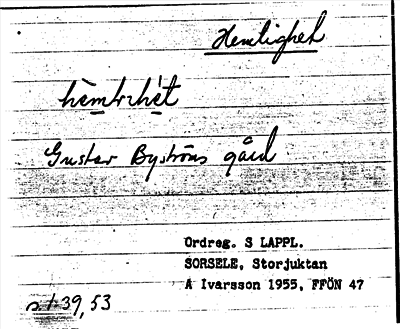 Hemlighet
Gustav Byströms gård
Ordreg. S LAPPL.
SORSELE, Storjuktan
A Ivarsson 1955, FFÖN 47
39,53